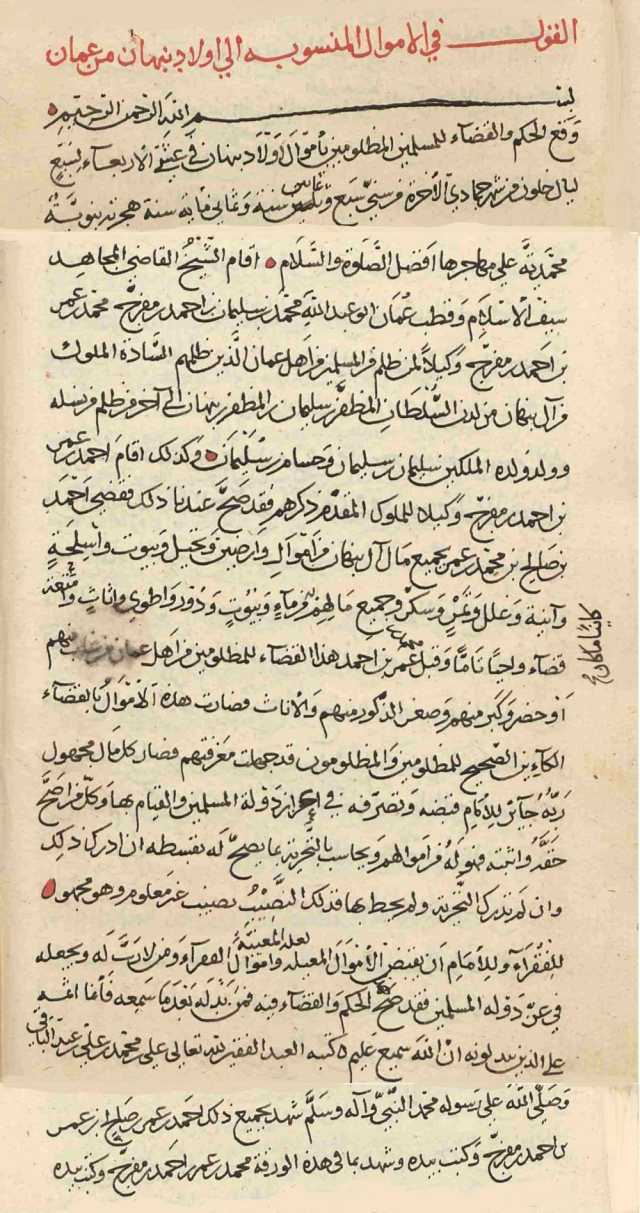 القول في الاموال المنسوبه الي اولاد نبهان من عمان
بسم الله الرحمن الرحيم
وقع الحكم والقضآء للمسلمين المظلومين بأموال أولاد نبهان في عشي الاربعآء لسبع
ليال خلون من شهر جمادي الأخرة من سني سبع وثمانين سنة وثماني مأية سنة هجرته نبوية
محمدية علي مهاجرها افضل الصلوة والسلام اقام الشيخ القاضي المجاهد
سيف الاسلام وقطب عمان ابو عبد الله محمد بن سليمان بن احمد بن مفرج محمد بن عمر
بن احمد بن مفرج وكيلاً لمن ظلم من المسلمين من اهل عمان الذين ظلمهم السادة الملوك
من آل نبهان من لدن السلطان المظفر بن سليمان بن المظفر بن نبهان الي آخر من ظلم من نسله
وولد ولده الملكين سليمان بن سليمان وحسام بن سليمان وكذلك اقام احمد بن عمر
بن احمد بن مفرج وكيلا للملوك المقدم ذكرهم فقد صح عندنا ذلك فقضي احمد
بن صالح بن محمد بن عمر بجميع مال آل نبهان من أموال وارضين ونخيل وبيوت واسلحة
وآنية وغلل وتمر وسكر وجميع مالهم من مآء وبيوت ودور واطوي واثاث وامتعة
كاينا ما كان
قضآء واجبا تاما وقبل محمد بن عمر بن احمد هذا القضآء للمظلومين من اهل عمان من غاب منهم
أو حضر وكبر منهم وصغر الذكور منهم والاناث فصارت هذه الأموال بالقضآء
الكآين الصحيح للمظلومين والمظلومون قد جهلت معرفتهم فصار كل مال مجهول
ربه جآيز للامام قبضه وتصرفه في اعزاز دولة المسلمين والقيام بها وكل من اصح
حقه واثبته فهو له من اموالهم ويحاسب بالتجزية بما يصح له بقسطه ان ادرك ذلك
وان لم تدرك التجزية ولم يحط بها فذلك النصيب نصيب غير معلوم وهو مجهول
لعله المغيبة
للفقرآء وللأمام ان يقبض الأموال المغيله واموال الفقرآء ومن لا رب له ويجعله
في عز دوله المسلمين فقد صح الحكم والقضآء فيه فمن بدله بعد ما سمعه فأنما اثمه
علي الذين يبدلونه ان الله سميع عليم كتبه العبد الفقير لله تعالي علي بن محمد بن علي بن عبد الباقي
وصلي الله علي رسوله محمد النبي وآله وسلم شهد بجميع ذلك احمد بن عمر بن صالح بن عمر
بن احمد بن مفرج وكتب بيده وشهد بما في هذه الورقة محمد بن عمر بن احمد بن مفرج وكتب بيده